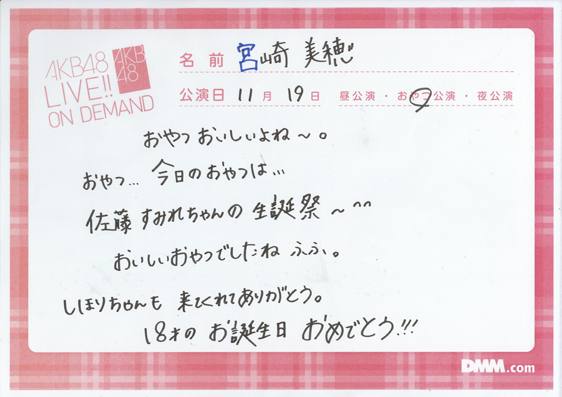 AKB48
LIVE!!
ON DEMAND
AKB
48
名前 宮崎 美穂
公演日 11月 19日 昼公演・おやつ公演・夜公演
おやつ おいしいよね〜。
おやつ… 今日のおやつは…
佐藤 すみれちゃんの 生誕祭 〜^^
おいしいおやつでしたね ふふ。
しほりちゃんも 来てくれてありがとう。
18才の お誕生日 おめでとう!!!
DMM.com